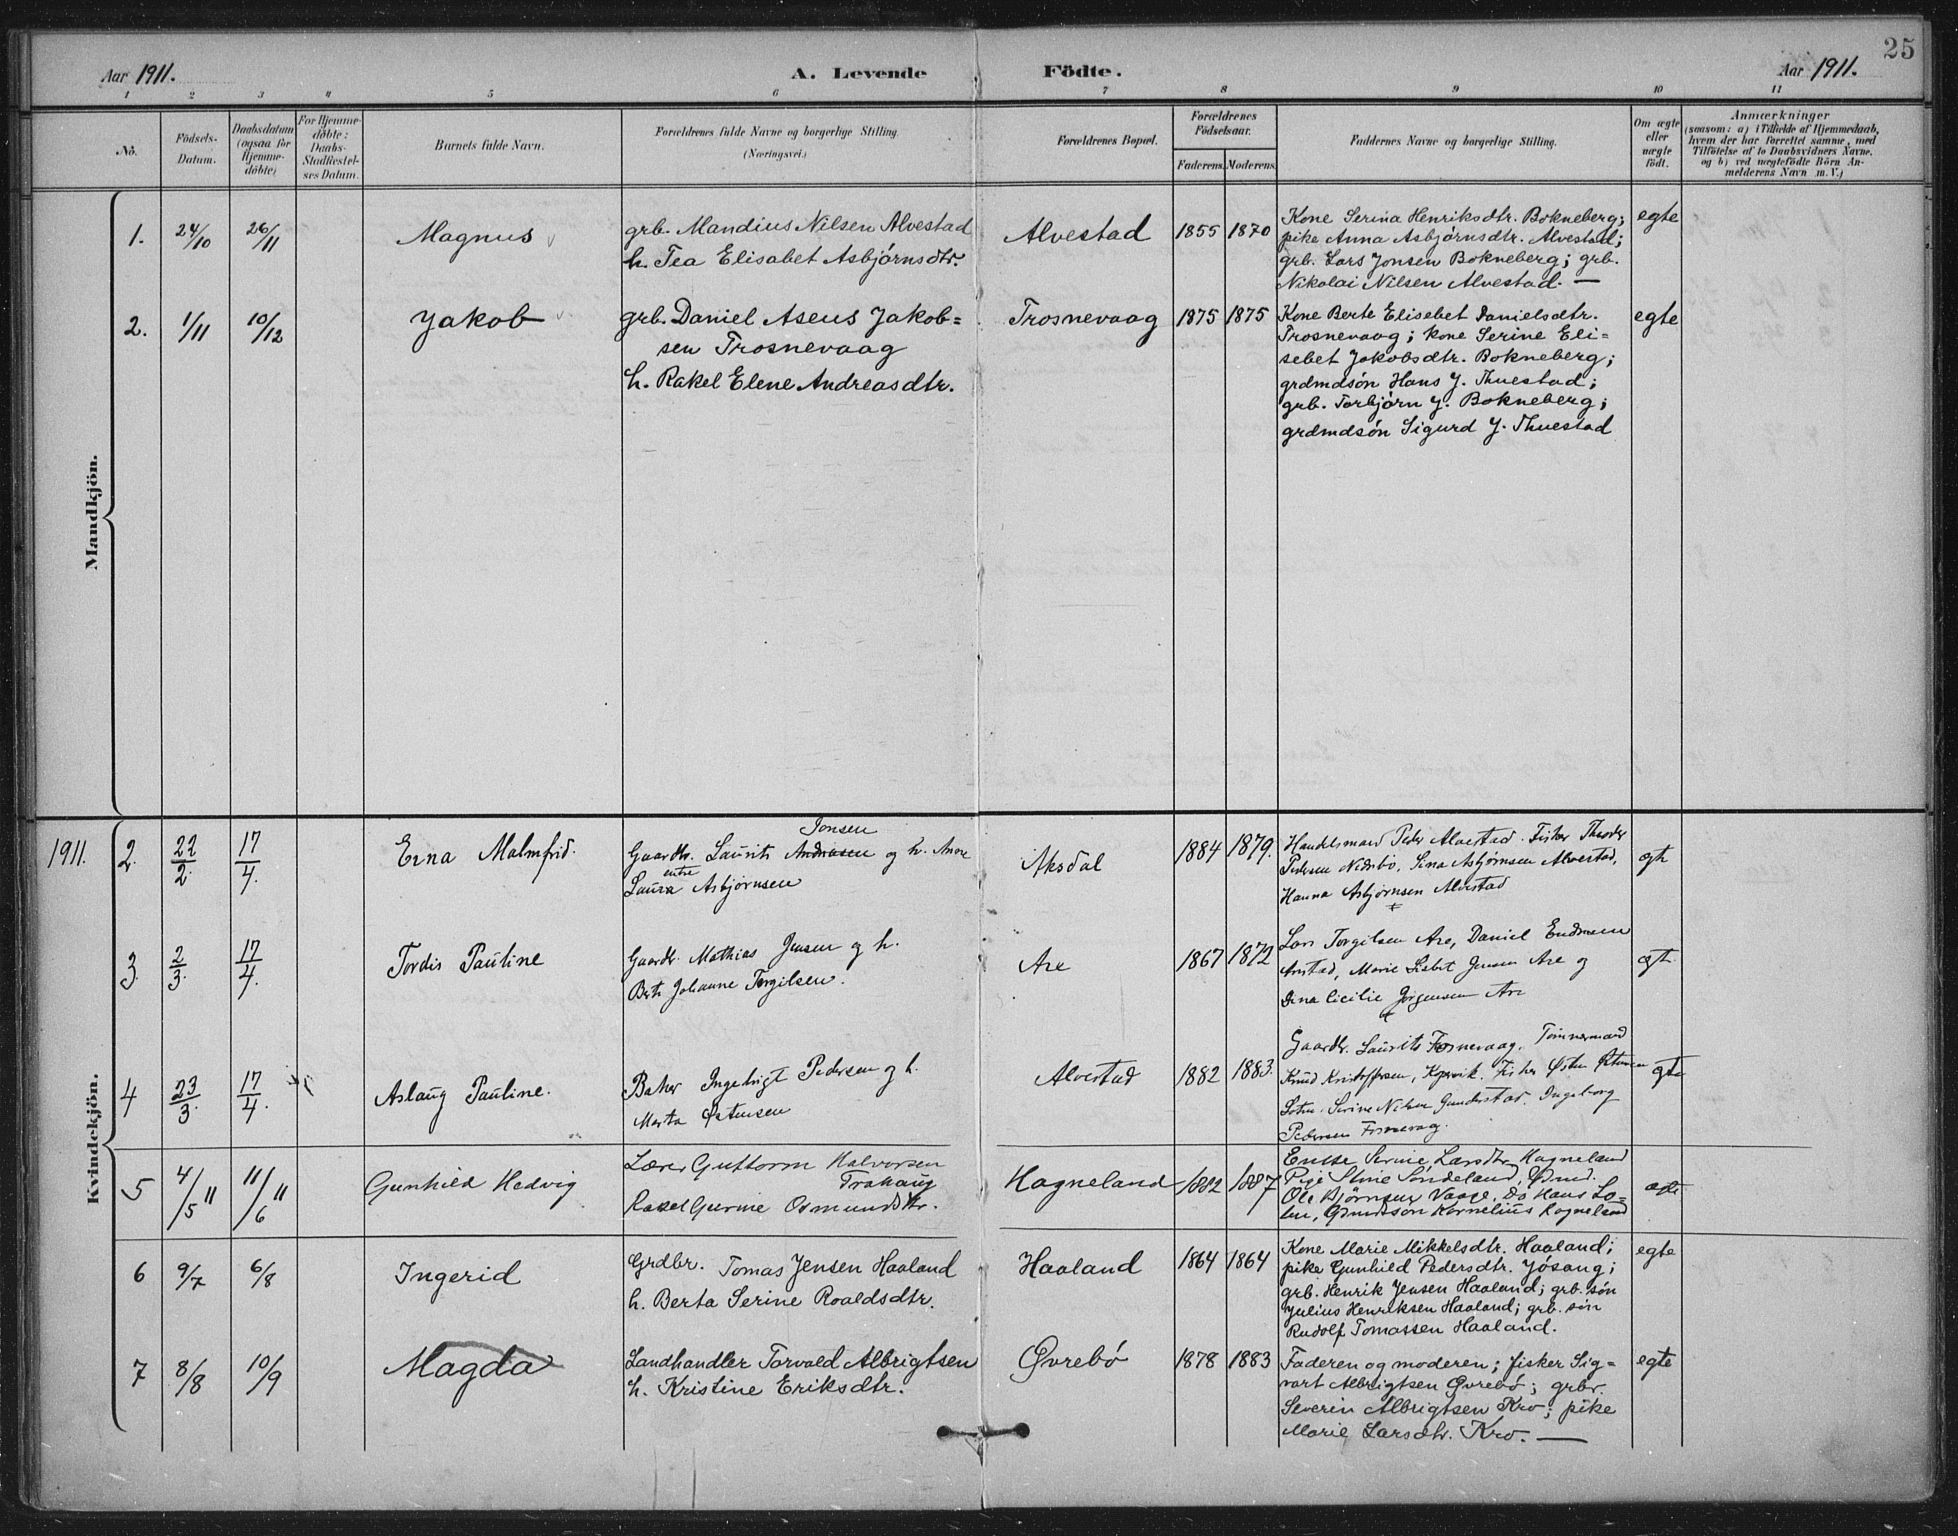 25
Aar 1911.
A. Levende Födte.
Aar 1911.
1 2 3 4 5 6 7 8 9 10 11
No.
Födsels-
Datum.
Daabsdatum
(ogsaa for
Hjemme-
döbte)
For Hjemme-
döbte:
Daabs-
Stadfæstel-
ses Datum.
Barnets fulde Navn.
Forældrenes fulde Navne og borgerlige Stilling.
(Næringsvei.)
Forældrenes Bopæl.
Forældrenes
Födselsaar.
Faderens. Moderens.
Faddernes Navne og borgerlige Stilling.
Om ægte
eller
uægte
födt.
Anmærkninger
(saasom: a) i Tilfælde af Hjemmedaab,
hvem der har forrettet samme, med
Tilföielse af to Daabsvidners Navne,
og b) ved uægtefödte Börn An-
melderens Navn m. V.)
Mandkjön.
1. 24/10 26/11 Magnus
grb. Mandius Nilsen Alvestad
h. Tea Elisabet Asbjørnsdtr.
Alvestad 1855 1870
Kone Serina Henriksdtr. Bokneberg;
pike Anna Asbjørnsdtr. Alvestad;
grb. Lars Jonsen Bokneberg; grb.
Nikolai Nilsen Alvestad. —
egte
2. 1/11 10/12 Jakob
grb. Daniel Aseus Jakob=
sen Trosnevaag
h. Rakel Elene Andreasdtr.
Trosnevaag 1875 1875
Kone Berte Elisebet Danielsdtr.
Trosnevaag; kone Serine Eli=
sebet Jakobsdtr. Bokneberg;
grdmdsøn Hans J. Thuestad;
grb. Torbjørn J. Bokneberg;
grdmdsøn Sigurd J. Thuestad
egte
Kvindekjön.
1911. 2. 22/2. 17/4. Erna Malmfrid.
Jonsen
Gaardbr. Laurits Andreasen og h. Anne
Laura Asbjørnsen
Aksdal 1884 1879.
Handelsmand Peder Alvestad. Fisker
Pedersen Nedrebø, Sina Asbjørnsen Alvestad,
Hanna Asbjørnsen Alvestad
3. 2/3. 17/4. Tordis Pauline
Gaardbr. Mathias Jensen og h.
Johanne Torgilsen.
Are 1867 1872
Lars Torgilsen Are, Daniel
Marie Jensen Are og
Cicilie Jørgensen Are
4 23/3. 17/4. Aslaug Pauline.
Baker Ingebrigt Pedersen og h.
Marta Østensen
Alvestad 1882 1883.
Gaardbr. Laurits Tømmermand
Knud Kristoffersen, Fisker Østen
Serine Nilsen Ingeborg
Pedersen
egte
5 4/5 11 11/6 11 Gunhild Hedvig
Lærer Guttorm Halvorsen
Rakel Gurine Osmundsdtr.
Hagneland 1882 1887
Enke Serine Larsdtr. Hagneland
Pige Stine Søndeland,
Ole Bjørnsen Vaage, Do Hans
Kornelius Hagneland
egte
6 9/7 6/8 Ingerid
Grdbr. Tomas Jensen Haaland
h. Berta Serine Roaldsdtr.
Haaland 1864 1864
Kone Marie Mikkelsdtr. Haaland;
pike Gunhild Pedersdtr. Jøsang;
grb. Henrik Jensen Haaland; grb. søn
Julius Henriksen Haaland; grb. søn
Rudolf Tomassen Haaland.
egte
7 8/8 10/9 Magda
Landhandler Torvald Albrigtsen
h. Kristine Eriksdtr.
Øvrebø 1878 1883
Faderen og moderen; fisker Sig=
vart Albrigtsen Øvrebø; grbr.
Severin Albrigtsen Kro; pike
Marie Larsdtr. Kro. —
egte